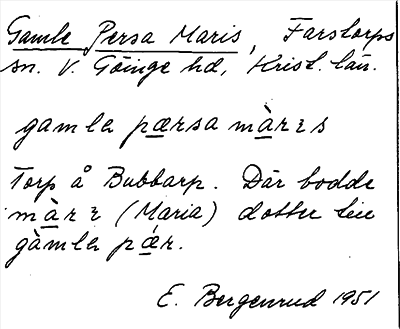 Gamle Persa Maris, Farstorps
sn. V. Göinge hd, Krist. län.
gamla pærsa màrɩs
Torp å Bubbarp. Där bodde
màrɩ (Maria) dotter till
gàmla pær.
E. Bergenrud 1951